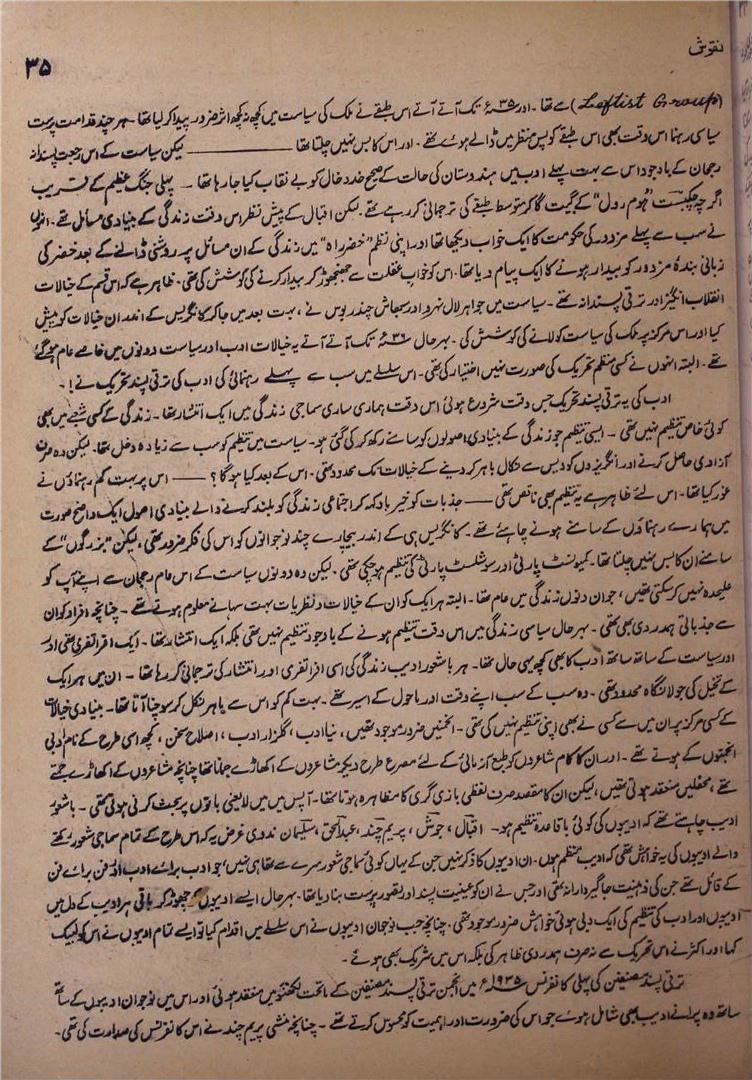 نقوش
۳۵
(Leftist Group) سے تھا۔ اور ۳۵ء تک آتے آتے اس طبقے نے ملک کی سیاست میں کچھ نہ کچھ اثر ضرور پیدا کر لیا تھا۔ ہر چند قدامت پرست
سیاسی رہنما اس وقت بھی اس طبقے کو پس منظر میں ڈالے ہوئے تھے۔ اور اس کا بس نہیں چلتا تھا ——— لیکن سیاست کے اس رجعت پسندانہ
رجحان کے باوجود اس سے بہت پہلے ادب میں ہندوستان کی حالت کے صحیح خد و خال کو بے نقاب کیا جا رہا تھا۔ پہلی جنگ عظیم کے قریب
اگرچہ چکبست "ہوم رول" کے گیت گا کر متوسط طبقے کی ترجمانی کر رہے تھے۔ لیکن اقبال کے پیش نظر اس وقت زندگی کے بنیادی مسائل تھے۔ انہوں
نے سب سے پہلے مزدور کی حکومت کا ایک خواب دیکھا تھا اور اپنی نظم "خضر راہ" میں زندگی کے ان مسائل پر روشنی ڈالنے کے بعد خضر کی
زبانی بندۂ مزدور کو بیدار ہونے کا ایک پیام دیا تھا۔ اس کو خواب غفلت سے جھنجھوڑ کر بیدار کرنے کی کوشش کی تھی۔ ظاہر ہے کہ اس قسم کے خیالات
انقلاب انگیز اور ترقی پسندانہ تھے۔ سیاست میں جواہر لال نہرو اور سبھاش چندر بوس نے، بہت بعد میں جا کر کانگریس کے اندر ان خیالات کو پیش
کیا اور اس مرکز پر ملک کی سیاست کو لانے کی کوشش کی۔ بہر حال ۳۶ء تک آتے آتے یہ خیالات ادب اور سیاست دونوں میں خاصے عام ہو گئے
تھے۔ البتہ انہوں نے کسی منظم تحریک کی صورت نہیں اختیار کی تھی۔ اس سلسلے میں سب سے پہلے رہنمائی کی ادب کی ترقی پسند تحریک نے!۔
ادب کی یہ ترقی پسند تحریک جس وقت شروع ہوئی اس وقت ہماری ساری سماجی زندگی میں ایک انتشار تھا۔ زندگی کے کسی شعبے میں بھی
کوئی خاص تنظیم نہیں تھی۔ ایسی تنظیم جو زندگی کے بنیادی اصولوں کو سامنے رکھ کر کی گئی ہو۔ سیاست میں تنظیم کو سب سے زیادہ دخل تھا۔ لیکن وہ صرف
آزادی حاصل کرنے اور انگریزوں کو دیس سے نکال باہر کر دینے کے خیالات تک محدود تھی۔ اس کے بعد کیا ہوگا؟ —— اس پر بہت کم رہنماؤں نے
غور کیا تھا۔ اس لئے ظاہر ہے یہ تنظیم بھی ناقص تھی —— جذبات کو خیر باد کہہ کر اجتماعی زندگی کو بلند کرنے والے بنیادی اصول ایک واضح صورت
میں ہمارے رہنماؤں کے سامنے ہونے چاہئے تھے۔ کانگریس ہی کے اندر بیچارے چند نوجوانوں کو اس کی فکر ضرور تھی، لیکن "بزرگوں" کے
سامنے ان کا بس نہیں چلتا تھا۔ کمیونسٹ پارٹی اور سوشلسٹ پارٹی کی تنظیم ہو چکی تھی۔ لیکن وہ دونوں سیاست کے اس عام رجحان سے اپنے آپ کو
علیحدہ نہیں کر سکتی تھیں، جو ان دنوں زندگی میں عام تھا۔ البتہ ہر ایک کو ان کے خیالات و نظریات بہت سہانے معلوم ہوتے تھے۔ چنانچہ افراد کو ان
سے جذباتی ہمدردی بھی تھی۔ بہر حال سیاسی زندگی میں اس وقت تنظیم ہونے کے باوجود تنظیم نہیں تھی بلکہ ایک انتشار تھا۔ ایک افراتفری تھی اور
اور سیاست کے ساتھ ساتھ ادب کا بھی کچھ یہی حال تھا۔ ہر با شعور ادیب زندگی کی اسی افراتفری اور انتشار کی ترجمانی کر رہا تھا۔ ان میں ہر ایک
کے تخیل کی جولانگاہ محدود تھی۔ وہ سب کے سب اپنے وقت اور ماحول کے اسیر تھے۔ بہت کم کو اس سے باہر نکل کر سوچنا آتا تھا۔ بنیادی خیالات
کے کسی مرکز پر ان میں سے کسی نے بھی اپنی تنظیم نہیں کی تھی۔ انجمنیں ضرور موجود تھیں، نیا ادب، گلزار ادب، اصلاح سخن، کچھ اسی طرح کے نام ادبی
انجمنوں کے ہوتے تھے۔ اور ان کا کام شاعروں کو طبع آزمائی کے لئے مصرع طرح دیکر مشاعروں کے اکھاڑے جمانا تھا چنانچہ مشاعروں کے اکھاڑے جمتے
تھے، محفلیں منعقد ہوتی تھیں، لیکن ان کا مقصد صرف لفظی بازی گری کا مظاہرہ ہوتا تھا۔ آپس میں میں لایعنی باتوں پر بحث کرنی ہوتی تھی۔ با شعور
ادیب چاہتے تھے کہ ادیبوں کی کوئی باقاعدہ تنظیم ہو۔ اقبال، جوش، پریم چند، عبدالحق، سلیمان ندوی غرض یہ کہ اس طرح کے تمام سماجی شعور رکھنے
والے ادیبوں کی یہ خواہش تھی کہ ادیب منظم ہوں۔ ان ادیبوں کا ذکر نہیں جن کے یہاں کوئی سماجی شعور سرے سے تھا ہی نہیں، جو ادب برائے ادب اور فن برائے فن
کے قائل تھے جن کی ذہنیت جاگیردارانہ تھی اور جس نے ان کو عینیت پسند اور تصور پرست بنا دیا تھا۔ بہر حال ایسے ادیبوں کو چھوڑ کر باقی ہر ادیب کے دل میں
ادیبوں اور ادب کی تنظیم کی ایک دبی ہوئی خواہش ضرور موجود تھی۔ چنانچہ جب نوجوان ادیبوں نے اس سلسلے میں اقدام کیا تو ایسے تمام ادیبوں نے اس کو لبیک
کہا اور اکثر نے اس تحریک سے نہ صرف ہمدردی ظاہر کی بلکہ اس میں شریک بھی ہوئے۔
ترقی پسند مصنفین کی پہلی کانفرنس ۱۹۳۵ء میں انجمن ترقی پسند مصنفین کے ماتحت لکھنؤ میں منعقد ہوئی اور اس میں نوجوان ادیبوں کے ساتھ
ساتھ وہ پرانے ادیب بھی شامل ہوئے جو اس کی ضرورت اور اہمیت کو محسوس کرتے تھے۔ چنانچہ منشی پریم چند نے اس کانفرنس کی صدارت کی تھی۔